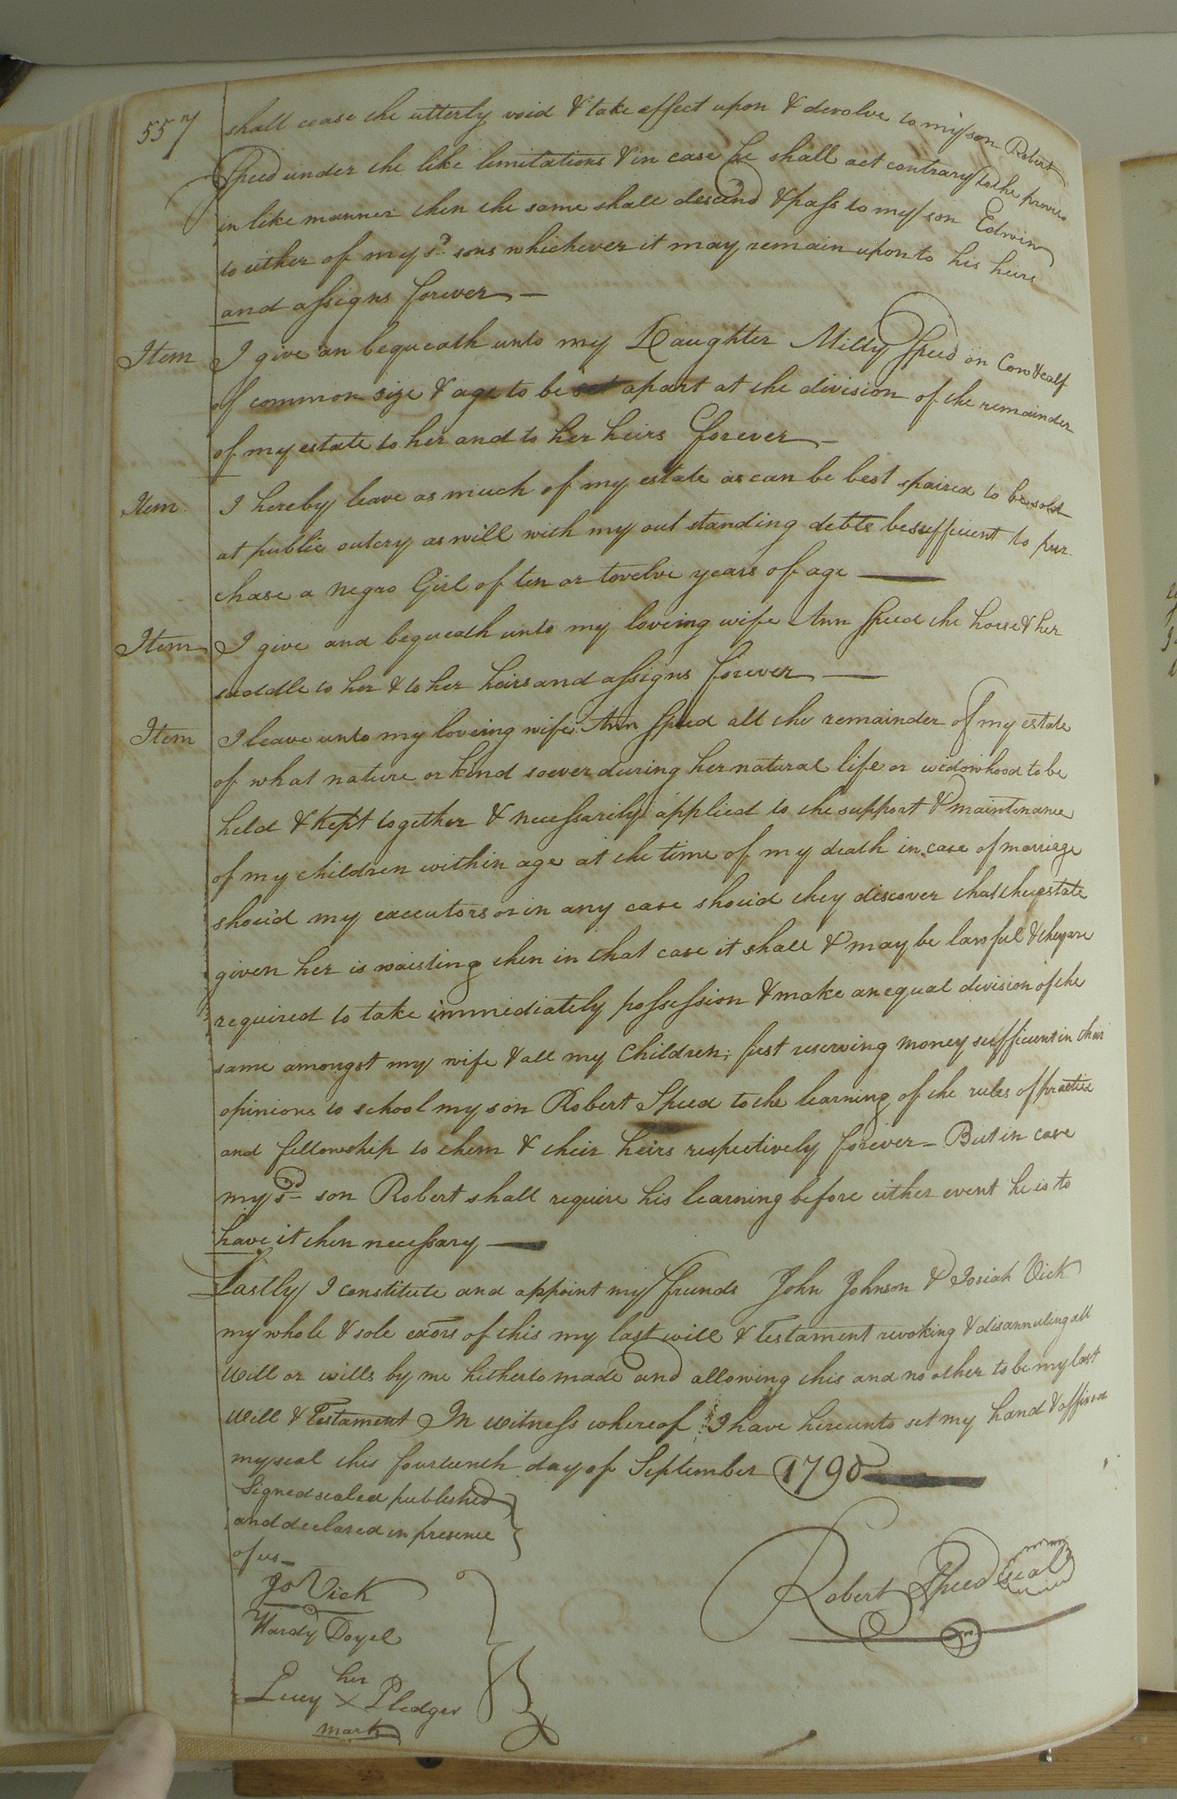 557
shall cease the utterly void & take effect upon & devolve to my son Robert
Speed under the like limitations & in case he shall act contrary to the proviso
in like manner then the same shall descend & pass to my son Edwin
to either of my sd. sons whichever it may remain upon to his heirs
and assigns forever —
Item I give an bequeath unto my Daughter Milly Speed on Cow & calf
of common size & age to be set apart at the division of the remainder
of my estate to her and to her heirs forever —
Item I hereby leave as much of my estate as can be best spaired to be sold
at public outcry as will with my out standing debts be suffecient to pur
chase a negro Girl of ten or twelve years of age —
Item I give and bequeath unto my loveing wife Ann Speed the horse & her
saddle to her & to her heirs and assigns forever —
Item I leave unto my loveing wife Ann Speed all the remainder of my estate
of what nature or kind soever during her natural life or widowhood to be
held & kept together & necessarily applied to the support & maintenance
of my children within age at the time of my death in case of marriege
should my executors or in any case should they discover that the estate
given her is waisting then in that case it shall & may be lawful & they are
required to take immediately possession & make an equal division of the
same amongst my wife & all my Children; first reserving money sufficient in their
opinions to school my son Robert Speed to the learning of the rules of practice
and fellowship to them & their heirs respectively forever — But in case
my sd son Robert shall require his learning before either event he is to
have it then necessary —
Lastly I constitute and appoint my friends John Johnson & Josiah Vick
my whole & sole exors of this my last will & Testament revoking & disannuling all
Will or wills by me hitherto made and allowing this and no other to be my last
Will & Testament In witness whereof I have hereunto set my hand & affixed
my seal this fourteenth day of September 1790
Signed sealed published
and declared in presence
of us —
Jo Vick
Hardy Doyel
her
Lucy X Pledger
mark
Robert Speed Seal